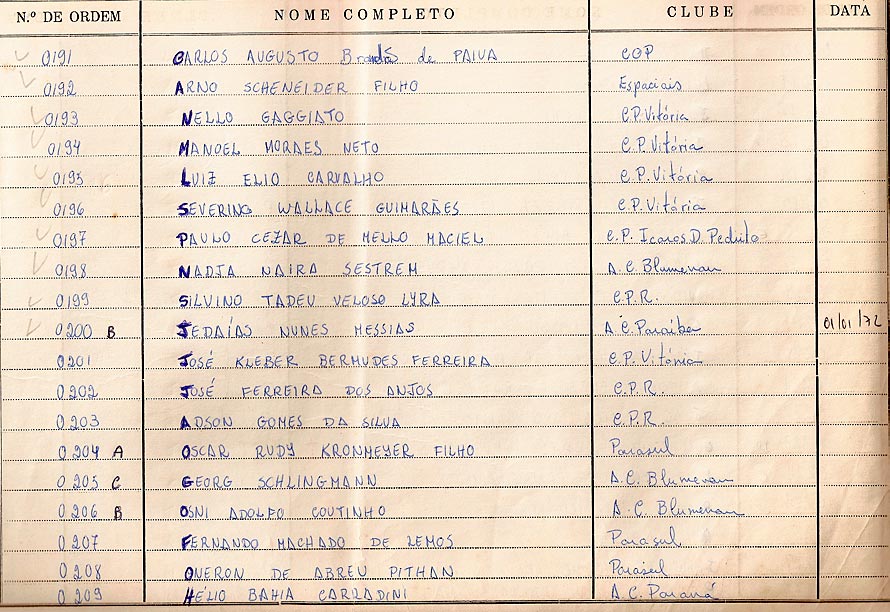 N.º DE ORDEM NOME COMPLETO CLUBE DATA
0191 CARLOS AUGUSTO Brandão de PAIVA COP
0192 ARNO SCHENEIDER FILHO Espaciais
0193 NELLO GAGGIATO C.P. Vitória
0194 MANOEL MORAES NETO C.P. Vitória
0195 LUIZ ELIO CARVALHO C.P. Vitória
0196 SEVERINO WALLACE GUIMARÃES C.P. Vitória
0197 PAULO CEZAR DE MELLO MACIEL C.P. Icaros D. Pedrito
0198 NADJA NAIRA SESTREM A.C. Blumenau
0199 SILVINO TADEU VELOSO LYRA C.P.R.
0200 B JEDAÍAS NUNES MESSIAS A.C. Paraiba 01/01/72
0201 JOSÉ KLEBER BERMUDES FERREIRA C.P. Vitória
0202 JOSÉ FERREIRA DOS ANJOS C.P.R.
0203 ADSON GOMES DA SILVA C.P.R.
0204 A OSCAR RUDY KRONMEYER FILHO Parasul
0205 C GEORG SCHLINGMANN A.C. Blumenau
0206 B OSNI ADOLFO COUTINHO A.C. Blumenau
0207 FERNANDO MACHADO DE LEMOS Parasul
0208 ONERON DE ABREU PITHAN Parasul
0209 HÉLIO BAHIA CARRADINI A.C. Paraná